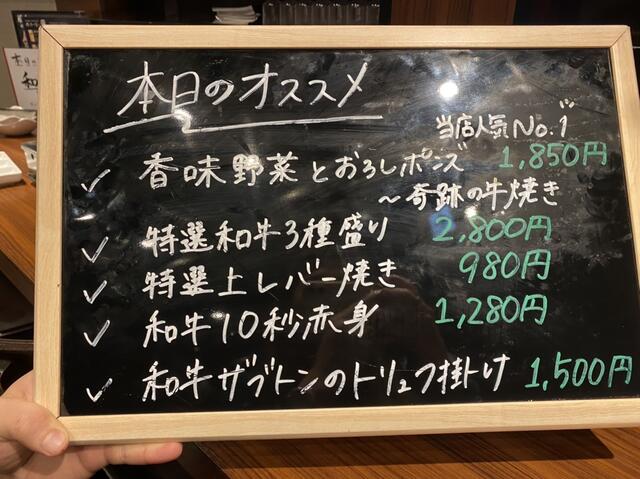 本日のオススメ
当店人気No.1
香味野菜とおろしポンズ 1,850円
～奇跡の牛焼き
特選和牛3種盛り 2,800円
特選上レバー焼き 980円
和牛10秒赤身 1,280円
和牛ザブトンのトリュフ掛け 1,500円